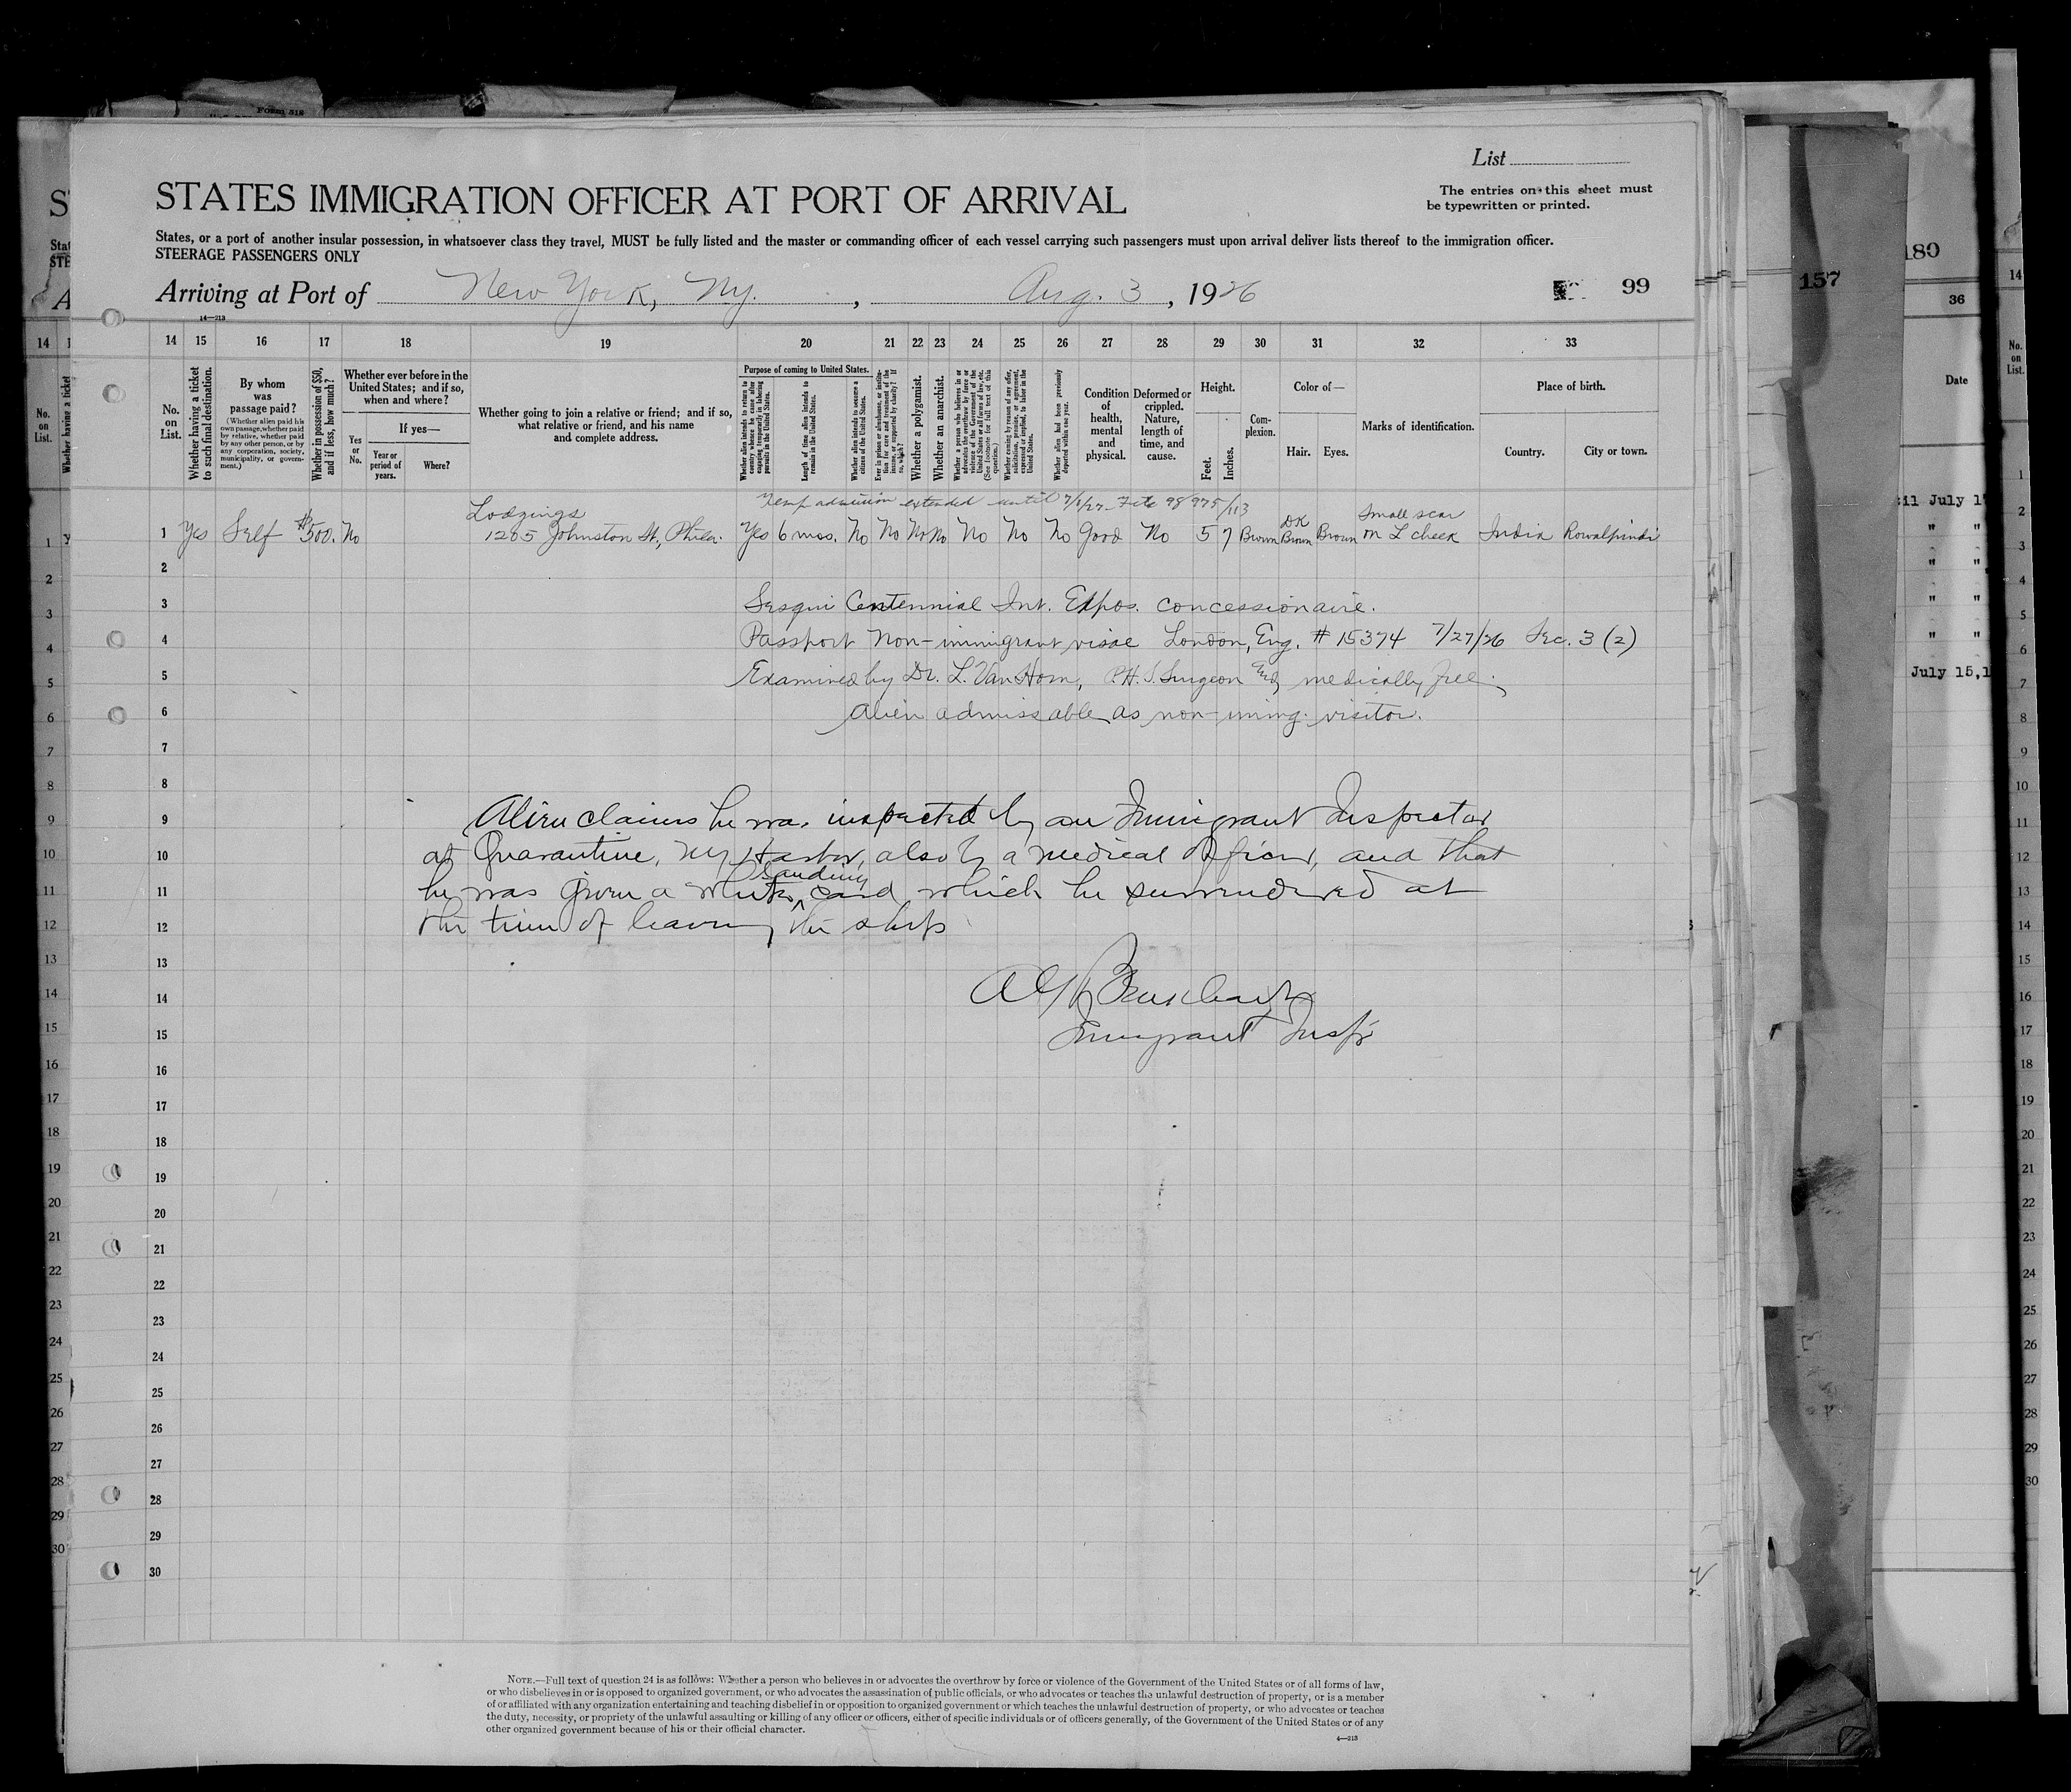 Form 518
List
STATES IMMIGRATION OFFICER AT PORT OF ARRIVAL
The entries on this sheet must
be typewritten or printed.
States, or a port of another insular possession, in whatsoever class they travel, MUST be fully listed and the master or commanding officer of each vessel carrying such passengers must upon arrival deliver lists thereof to the immigration officer.
STEERAGE PASSENGERS ONLY
Arriving at Port of New York, Ny. , Aug. 3 , 1926
99
157
180
14—213
14 15 16 17 18 19 20 21 22 23 24 25 26 27 28 29 30 31 32 33
36
No. on List.
Whether having a ticket to such final destination.
By whom was passage paid?
(Whether alien paid his own passage, whether paid by relative, whether paid by any other person, or by any corporation, society, municipality, or government.)
Whether in possession of $50, and if less, how much?
Whether ever before in the United States; and if so, when and where?
Yes or No.
If yes—
Year or period of years.
Where?
Whether going to join a relative or friend; and if so, what relative or friend, and his name and complete address.
Purpose of coming to United States.
Whether alien intends to return to country whence he came after engaging temporarily in laboring pursuits in the United States.
Length of time alien intends to remain in the United States.
Whether alien intends to become a citizen of the United States.
Ever in prison or almshouse, or institution for care and treatment of the insane, or supported by charity? If so, which?
Whether a polygamist.
Whether an anarchist.
Whether a person who believes in or advocates the overthrow by force or violence of the Government of the United States or all forms of law, etc. (See footnote for full text of this question.)
Whether coming by reason of any offer, solicitation, promise, or agreement, expressed or implied, to labor in the United States.
Whether alien had been previously deported within one year.
Condition of health, mental and physical.
Deformed or crippled. Nature, length of time, and cause.
Height.
Feet.
Inches.
Complexion.
Color of—
Hair.
Eyes.
Marks of identification.
Place of birth.
Country.
City or town.
Date
Temp admission extended until 7/1/27 File 98975/113
1 Yes Self $500. No Lodgings 1285 Johnston St., Phila. Yes 6 mos. No No No No No No No Good No 5 7 Brown DK Brown Brown Small scar on L cheek India Rowalpindi
2
3 Sesqui Centennial Int. Expos. concessionaire.
4 Passport Non-immigrant visae London, Eng. # 15374 7/27/26 Sec. 3 (2)
5 Examined by Dr. L. Van Horn, P.H.S. Surgeon and medically free.
6 Alien admissable as non-immig. visitor.
7
8
9 Alien claims he was inspected by an Immigrant Inspector
10 at Quarantine, Ny Harbor, also by a medical Officer, and that
11 he was given a white landing card which he surrendered at
12 the time of leaving the ship
13
14
15 Immigrant Insp
16
17
18
19
20
21
22
23
24
25
26
27
28
29
30
July 15,1
NOTE.—Full text of question 24 is as follows: Whether a person who believes in or advocates the overthrow by force or violence of the Government of the United States or of all forms of law,
or who disbelieves in or is opposed to organized government, or who advocates the assassination of public officials, or who advocates or teaches the unlawful destruction of property, or is a member
of or affiliated with any organization entertaining and teaching disbelief in or opposition to organized government or which teaches the unlawful destruction of property, or who advocates or teaches
the duty, necessity, or propriety of the unlawful assaulting or killing of any officer or officers, either of specific individuals or of officers generally, of the Government of the United States or of any
other organized government because of his or their official character.
4—213